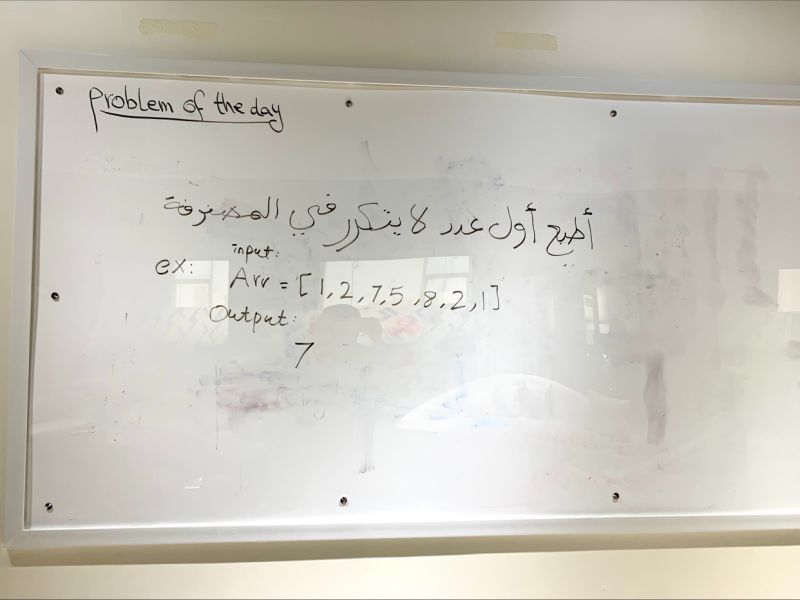 problem of the day
أطبع أول عدد لا يتكرر في المصفوفة
input:
ex: Arr = [1,2,7,5,8,2,1]
Output:
7